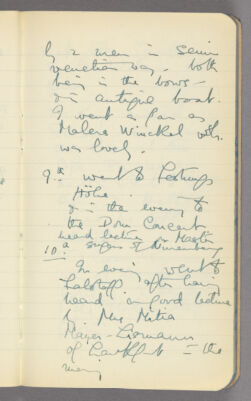 by 2 men in semi
venetian way - both
being in the bows -
& in antique boat.
I went as far as
Malene Winckel with.
was lovely.
9th went to Festungs
Höhe.
& in the evening to
the Dom Concert
heard lecture on Master
10th singers of Nuremberg
In evening went to
Falstaff, after having
heard a good lecture
by Mrs Mitia
Mayer-Lismann
of Frankfort - the